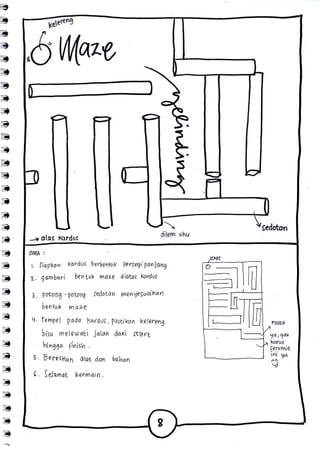 kelereng
Maze
gelinding
sedotan
alas kardus
dilem uhu
CARA :
1. Siapkan kardus berbentuk persegi panjang
2. gambari bentuk maze diatas kardus
3. potong-potong sedotan menyesuaikan
bentuk maze
4. Tempel pada kardus, pastikan kelereng
bisa melewati jalan dari start
hingga finish.
5. Bereskan alat dan bahan
6. Selamat bermain.
START
FINISH
ya, gak
harus
serumit
ini ya
8